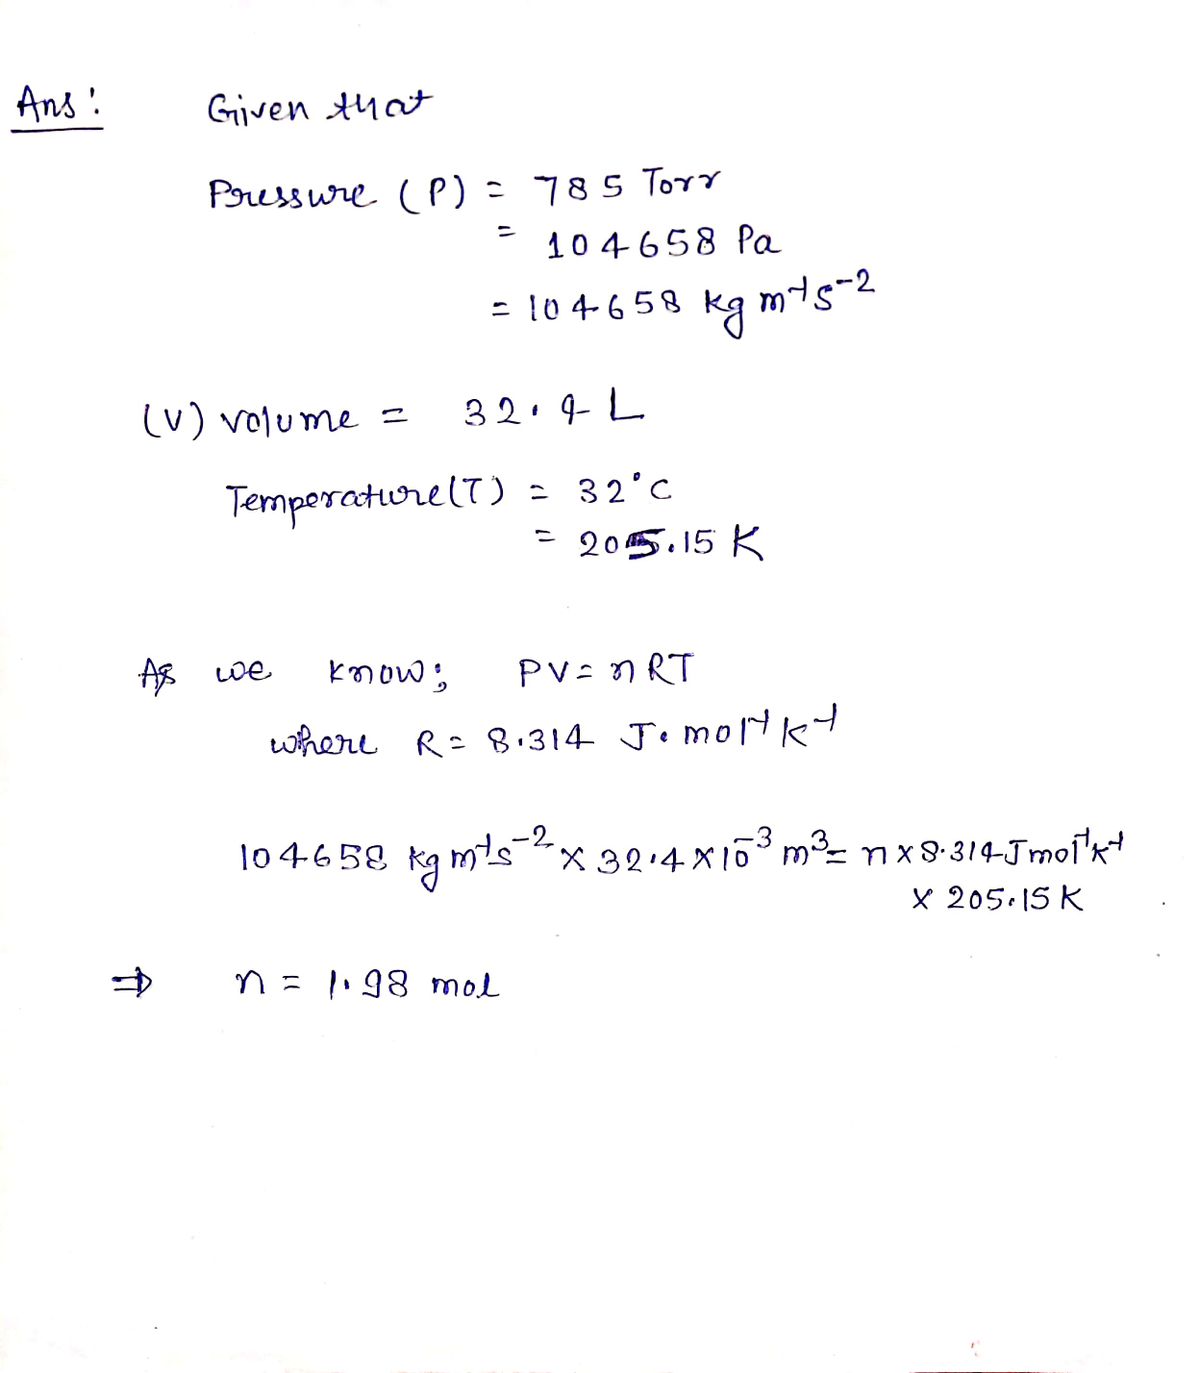 Ans:
Given that
Pressure (P) = 785 Torr
= 104658 Pa
= 104658 kg m⁻¹s⁻²
(V) volume = 32.4 L
Temperature(T) = 32°C
= 205.15 K
As we know; PV = nRT
where R = 8.314 J. mol⁻¹ k⁻¹
104658 kg m⁻¹s⁻² × 32.4 × 10⁻³ m³ = n × 8.314 J mol⁻¹k⁻¹
× 205.15 K
⇒ n = 1.98 mol